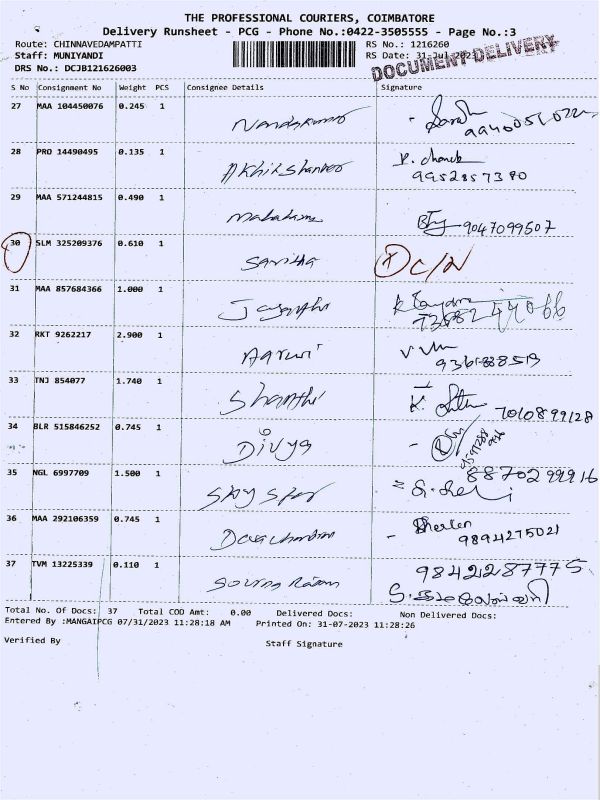 THE PROFESSIONAL COURIERS, COIMBATORE
Delivery Runsheet - PCG - Phone No.:0422-3505555 - Page No.:3
Route: CHINNAVEDAMPATTI RS No.: 1216260
Staff: MUNIYANDI RS Date: 31-Jul-2023
DRS No.: DCJB121626003 DOCUMENT DELIVERY
S No Consignment No Weight PCS Consignee Details Signature
27 MAA 104450076 0.245 1 Nandakumar
28 PRO 14490495 0.135 1 Akhil Shanker 9952857380
29 MAA 571244815 0.490 1 9047099507
30 SLM 325209376 0.610 1 Saritha
31 MAA 857684366 1.000 1 Jayanthi
32 RKT 9262217 2.900 1
33 TNJ 854077 1.740 1 Shanthi 7010899128
34 BLR 515846252 0.745 1 Divya
35 NGL 6997709 1.500 1 Sky Star 8870299916
36 MAA 292106359 0.745 1 Devachandran 9894275021
37 TVM 13225339 0.110 1 9842287775
Total No. Of Docs: 37 Total COD Amt: 0.00 Delivered Docs: Non Delivered Docs:
Entered By :MANGAIPCG 07/31/2023 11:28:18 AM Printed On: 31-07-2023 11:28:26
Verified By Staff Signature